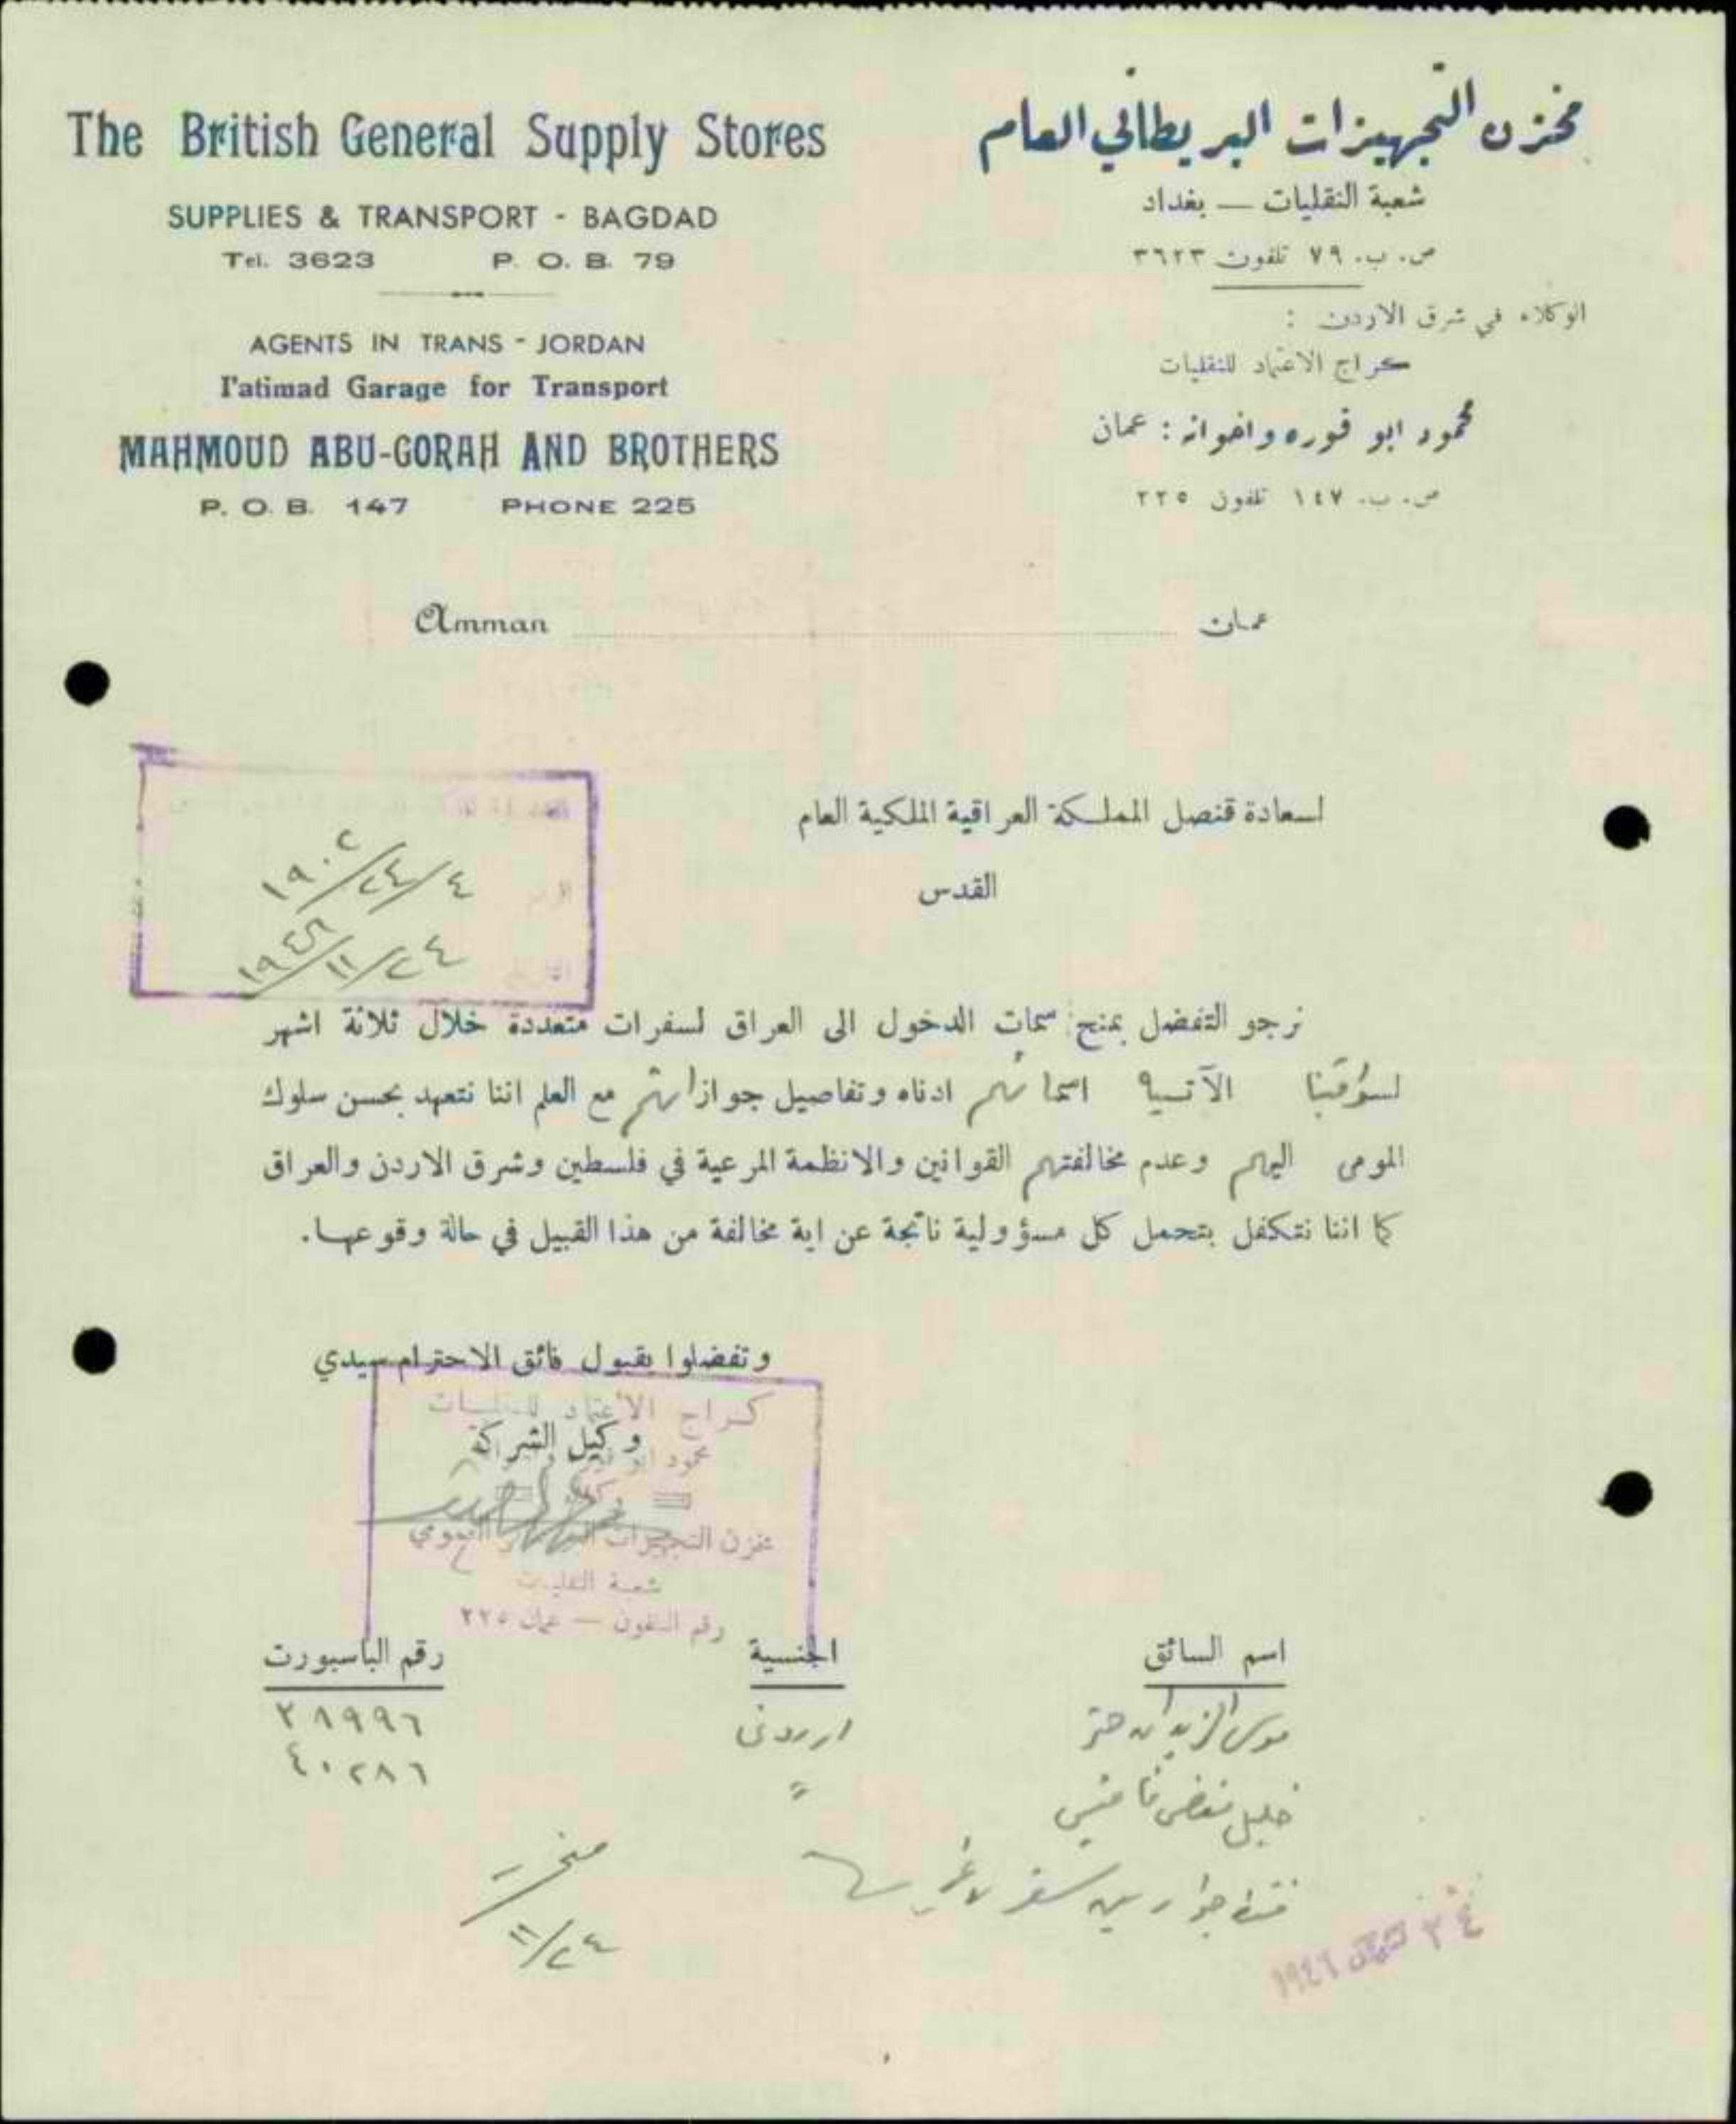 The British General Supply Stores
SUPPLIES & TRANSPORT - BAGDAD
Tel. 3623 P. O. B. 79
AGENTS IN TRANS - JORDAN
I'atimad Garage for Transport
MAHMOUD ABU-GORAH AND BROTHERS
P. O. B. 147 PHONE 225
مخزن التجهيزات البريطاني العام
شعبة النقليات — بغداد
ص. ب. ٧٩ تلفون ٣٦٢٣
الوكلاء في شرق الاردن :
كراج الاعتماد للنقليات
محمود ابو قوره واخوانه : عمان
ص. ب. ١٤٧ تلفون ٢٢٥
Amman عمان
لسعادة قنصل المملكة العراقية الملكية العام
القدس
٤/٢٤/١٩٠٢
٢٤/١١/١٩٤٦
نرجو التفضل بمنح سمات الدخول الى العراق لسفرات متعددة خلال ثلاثة اشهر
لسواقينا الآتية اسمائهم ادناه وتفاصيل جوازاتهم مع العلم اننا نتعهد بحسن سلوك
المومى اليهم وعدم مخالفتهم القوانين والانظمة المرعية في فلسطين وشرق الاردن والعراق
كما اننا نتكفل بتحمل كل مسؤولية ناتجة عن اية مخالفة من هذا القبيل في حالة وقوعها.
وتفضلوا بقبول فائق الاحترام سيدي
كراج الاعتماد للنقليات
وكيل الشركة
محمود ابو
مخزن التجهيزات العمومي
شعبة النقليات
رقم التلفون — عمان ٢٢٥
اسم السائق الجنسية رقم الباسبورت
موسى الزيدان حتر اردني ٣٨٩٩٦
خليل " ٤٠٢٨٦
سفر لا غير
٢٤/١١
٢٤ ١٩٤٦